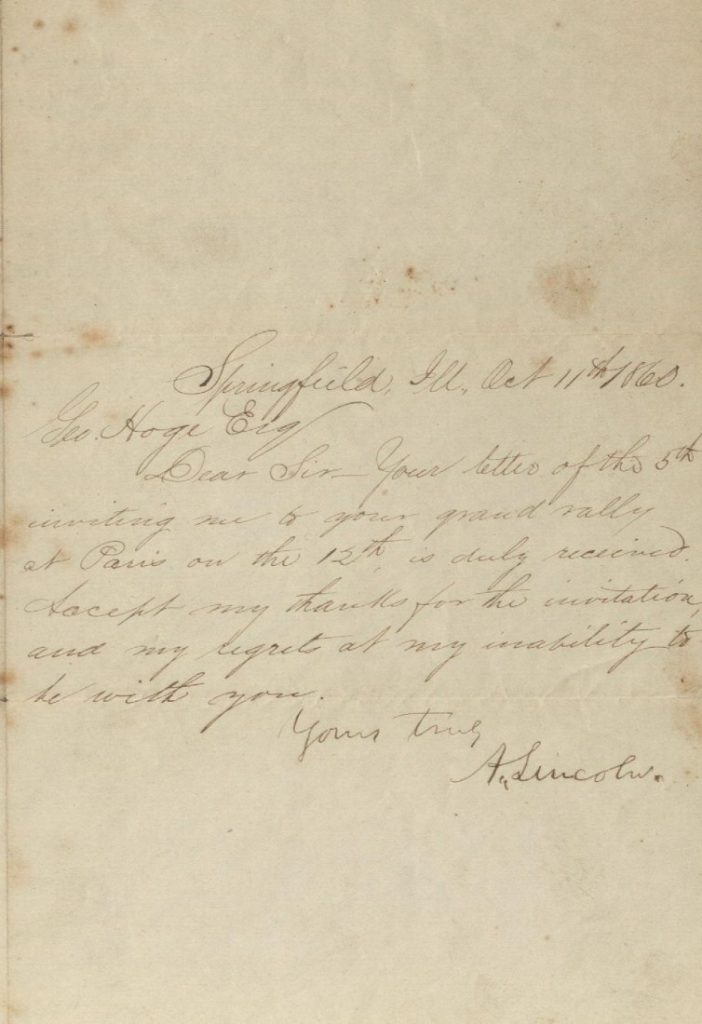 Springfield, Ill, Oct 11th 1860.
Geo. Hoge Esq
Dear Sir— Your letter of the 5th
inviting me to your grand rally
at Paris on the 12th is duly received.
Accept my thanks for the invitation,
and my regrets at my inability to
be with you.
Yours truly
A. Lincoln.